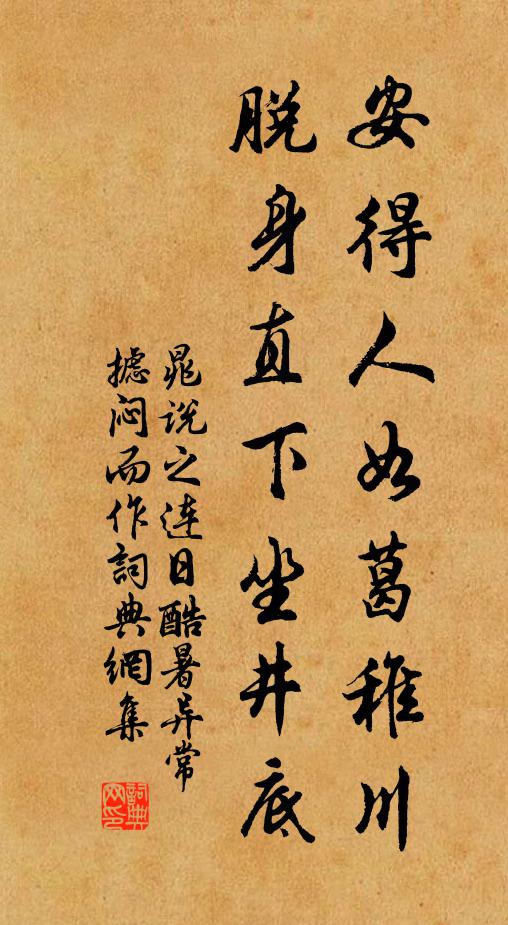 安得人如葛稚川
脱身直下坐井底
晁说之连日酷暑异常
摅闷而作詞典網集
詞典
网印